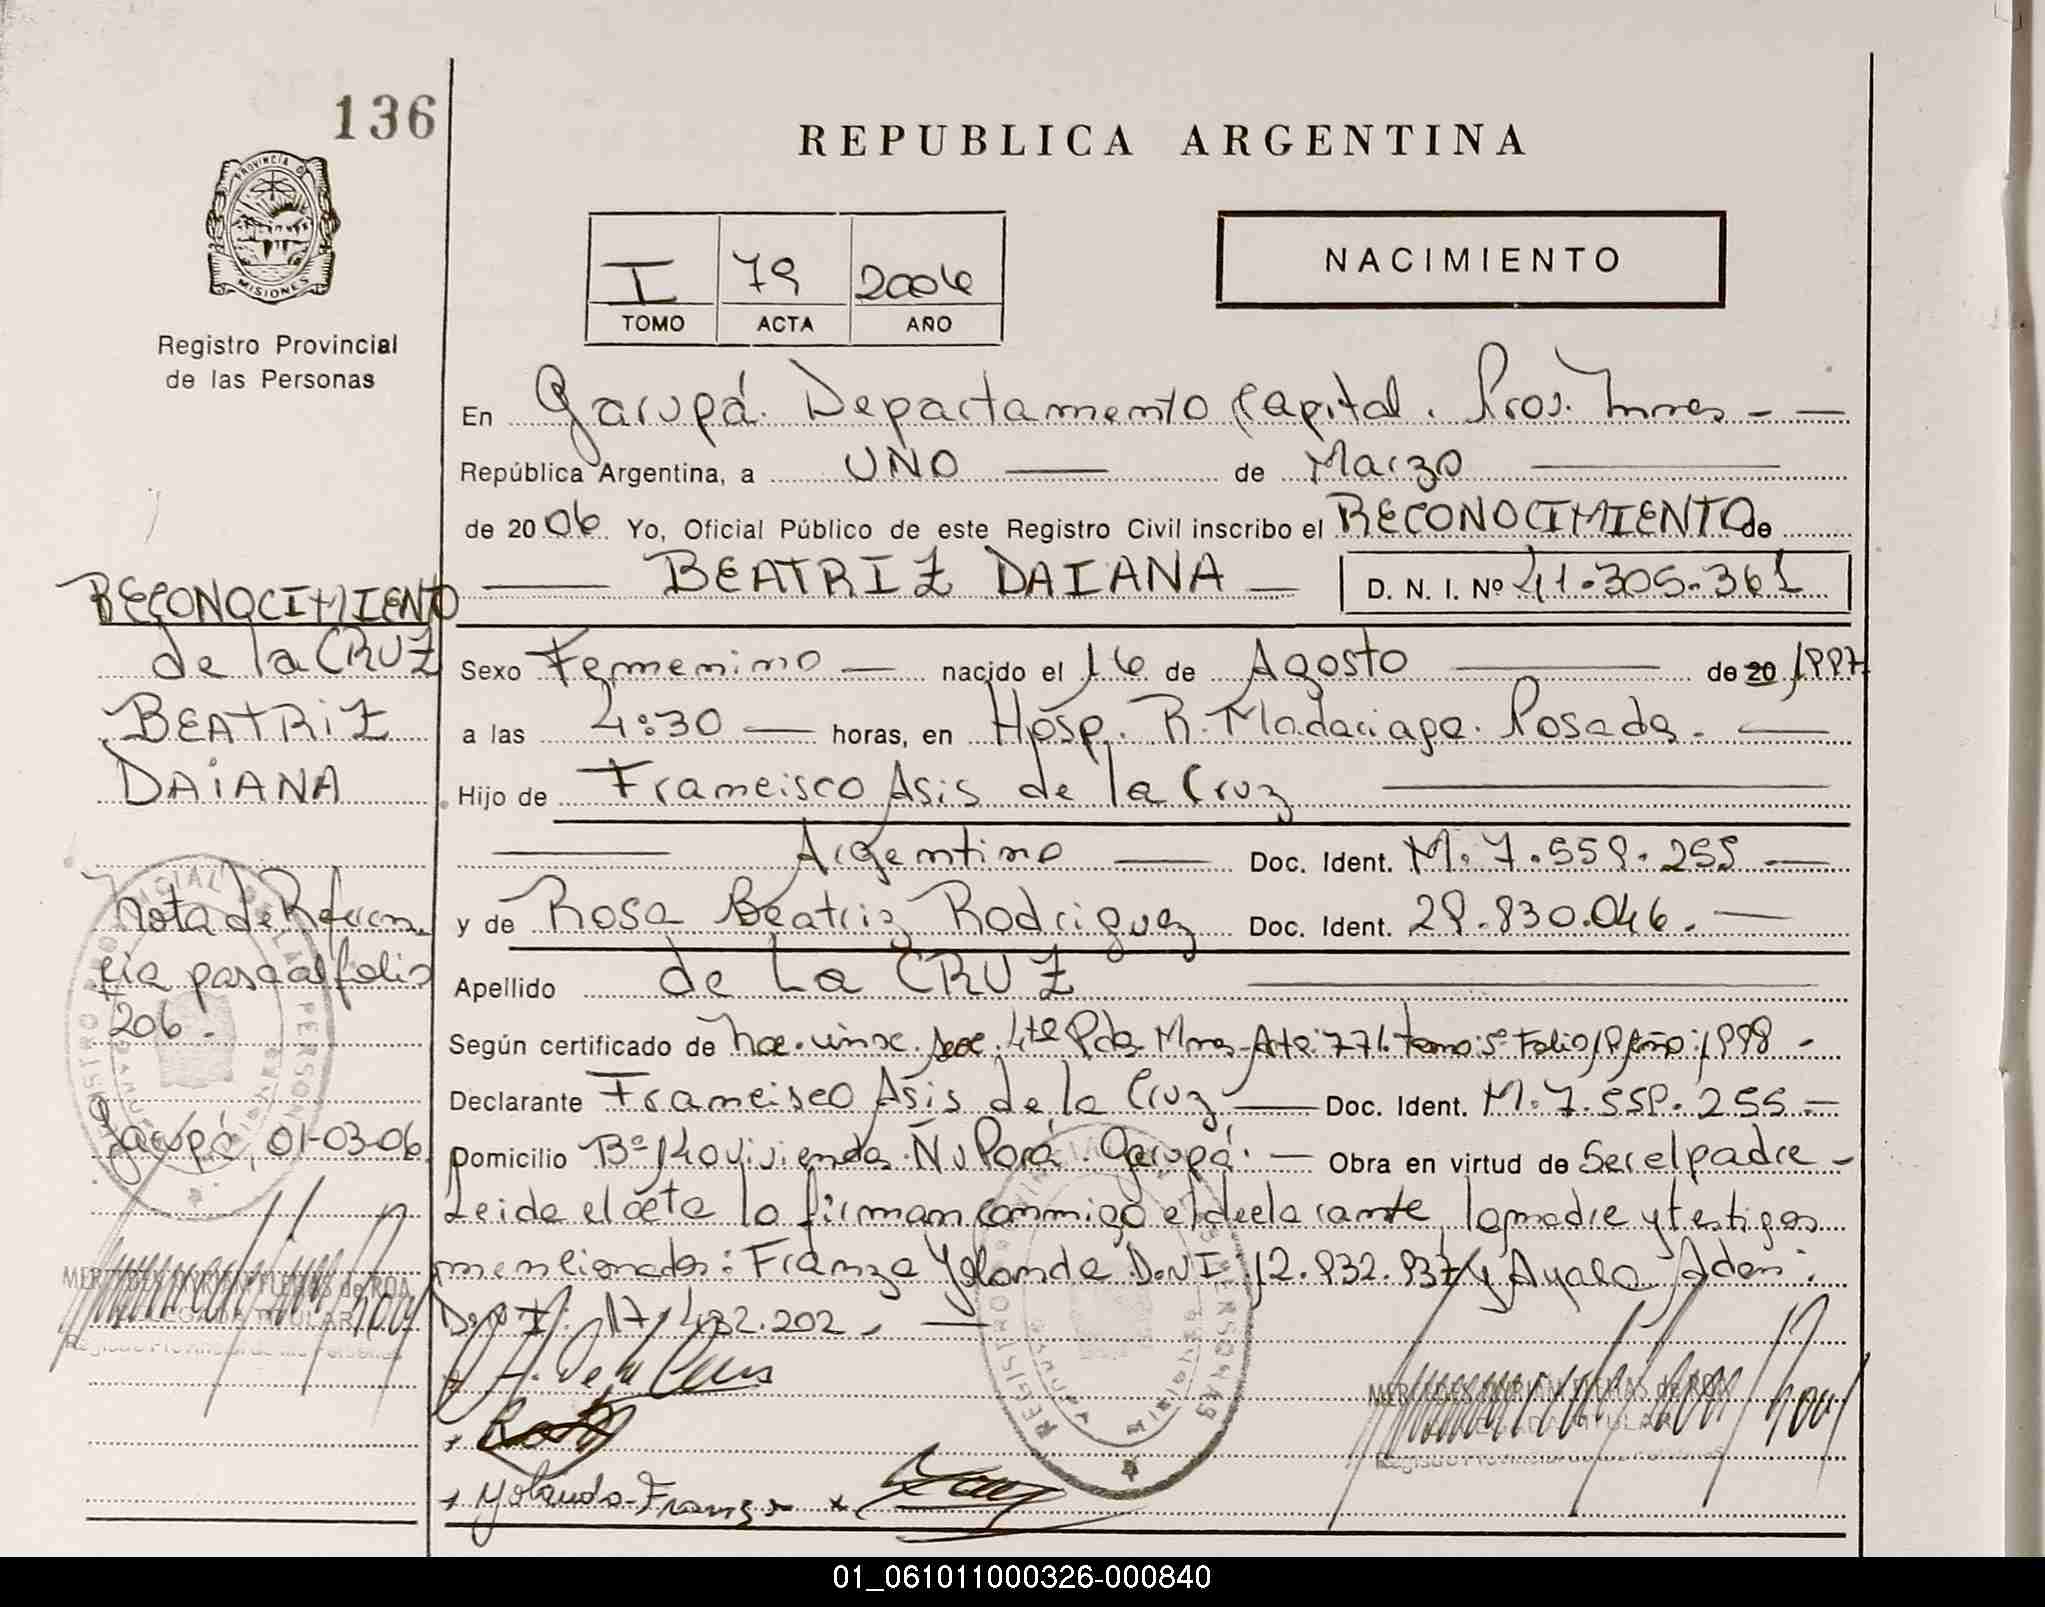 136
REPUBLICA ARGENTINA
PROVINCIA DE
MISIONES
Registro Provincial
de las Personas
I 79 2006
TOMO ACTA AÑO
NACIMIENTO
En Garupá. Departamento Capital. Prov. Mnes - —
República Argentina, a UNO — de Marzo —
de 2006 Yo, Oficial Público de este Registro Civil inscribo el RECONOCIMIENTO de
— BEATRIZ DAIANA — D. N. I. Nº 41.305.361
RECONOCIMIENTO
de la CRUZ
BEATRIZ
DAIANA
Sexo Femenino — nacido el 16 de Agosto — de 20 1997
a las 4:30 — horas, en Hosp. R. Madariaga. Posadas. —
Hijo de Francisco Asis de la Cruz —
— Argentino — Doc. Ident. M. 7.559.255 —
y de Rosa Beatriz Rodriguez Doc. Ident. 29.830.046. —
Apellido de La CRUZ —
Nota de Referen
cia pasa al folio
206.
Garupá, 01-03-06
Según certificado de Nac. 4te Pdas. Mnes - Acta: 771. Tomo: 5º Folio año: 1998 -
Declarante Francisco Asis de la Cruz — Doc. Ident. M. 7.559.255 —
Domicilio Bº 140 Viviendas. Ñu Porá. Garupá. — Obra en virtud de Ser el padre -
Leida el acta la firman conmigo el declarante, la madre y testigos
mencionados: Franza Yolanda D.N.I. 12.932.937 y Ayala Adan:
D.N.I. 17.432.202. —
MERCEDES MYRIAM de ROA
DELEGADA TITULAR
Registro Provincial de las Personas
A. De la Cruz
Yolanda Franza
MERCEDES MYRIAM de ROA
DELEGADA TITULAR
Registro Provincial de las Personas
01_061011000326-000840